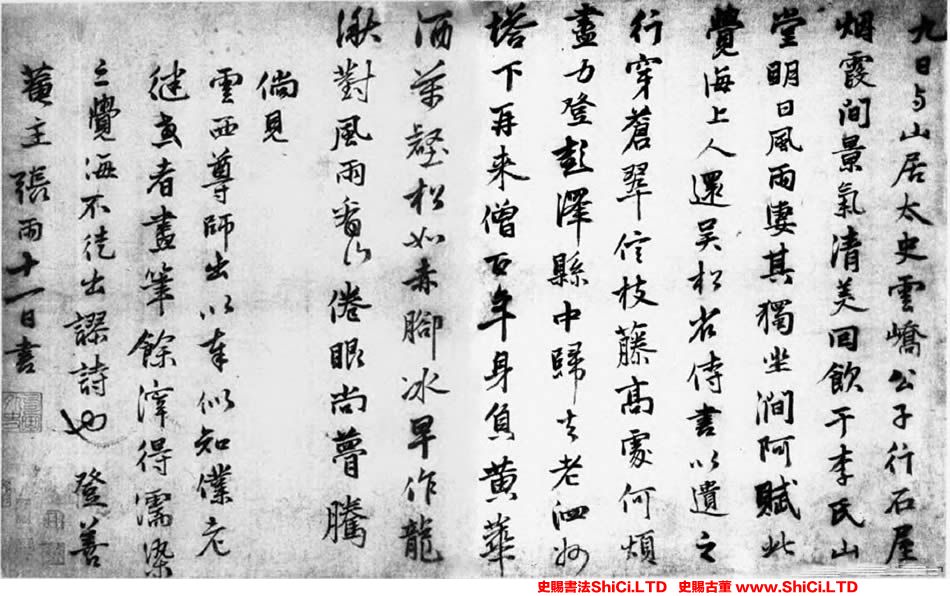 九日与山居太史雲嶠公子行石屋
烟霞间景氣清美回飲于李氏山
堂明日風雨凄其獨坐澗阿賦此
覺海上人還吴松若侍書以遺之
行穿蒼翠信枝藤高處何煩
盡力登彭澤縣中歸去老泗州
塔下再来僧百年身負黄華
酒萬壑松如赤腳冰早作龍
湫對風雨看山倦眼尚瞢騰
倘見
雲西尊師出以奉似知僕尤
健者畫筆餘滓得濡染
之覺海不徒出謬詩也 登善
菴主張雨十一日書
史賜書法ShiCi.LTD 史賜古董 www.ShiCi.LTD